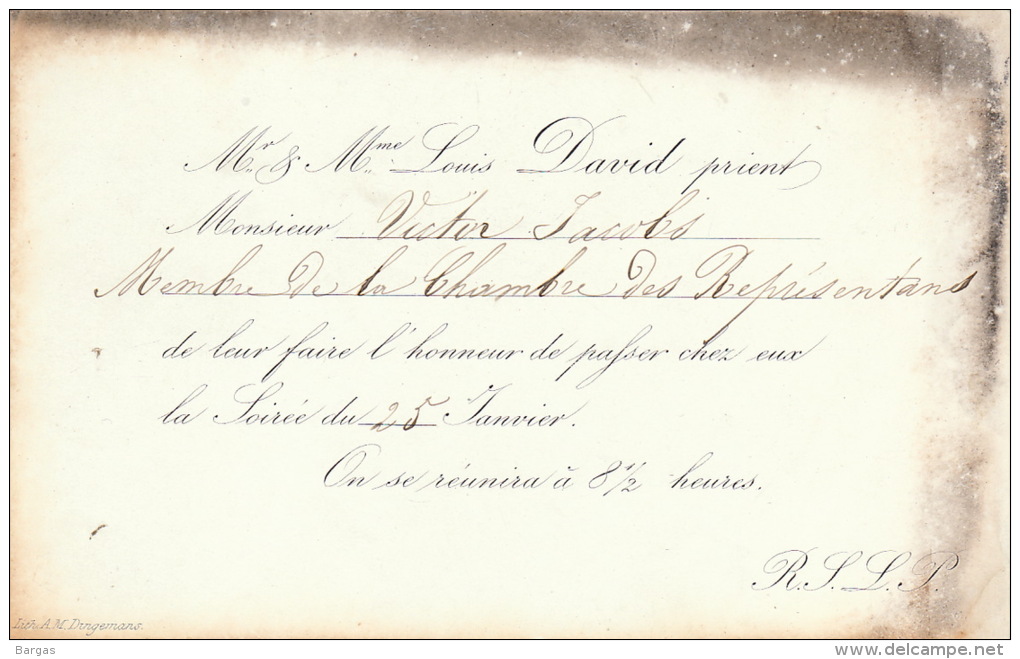 Mr. & Mme. Louis David prient
Monsieur Victor Jacobs
Membre de la Chambre des Représentans
de leur faire l'honneur de paſser chez eux
la Soirée du 25 Janvier.
On se réunira à 8 1/2 heures.
R. S. L. P.
Lith. A. M. Dingemans.
Bargas
www.delcampe.net